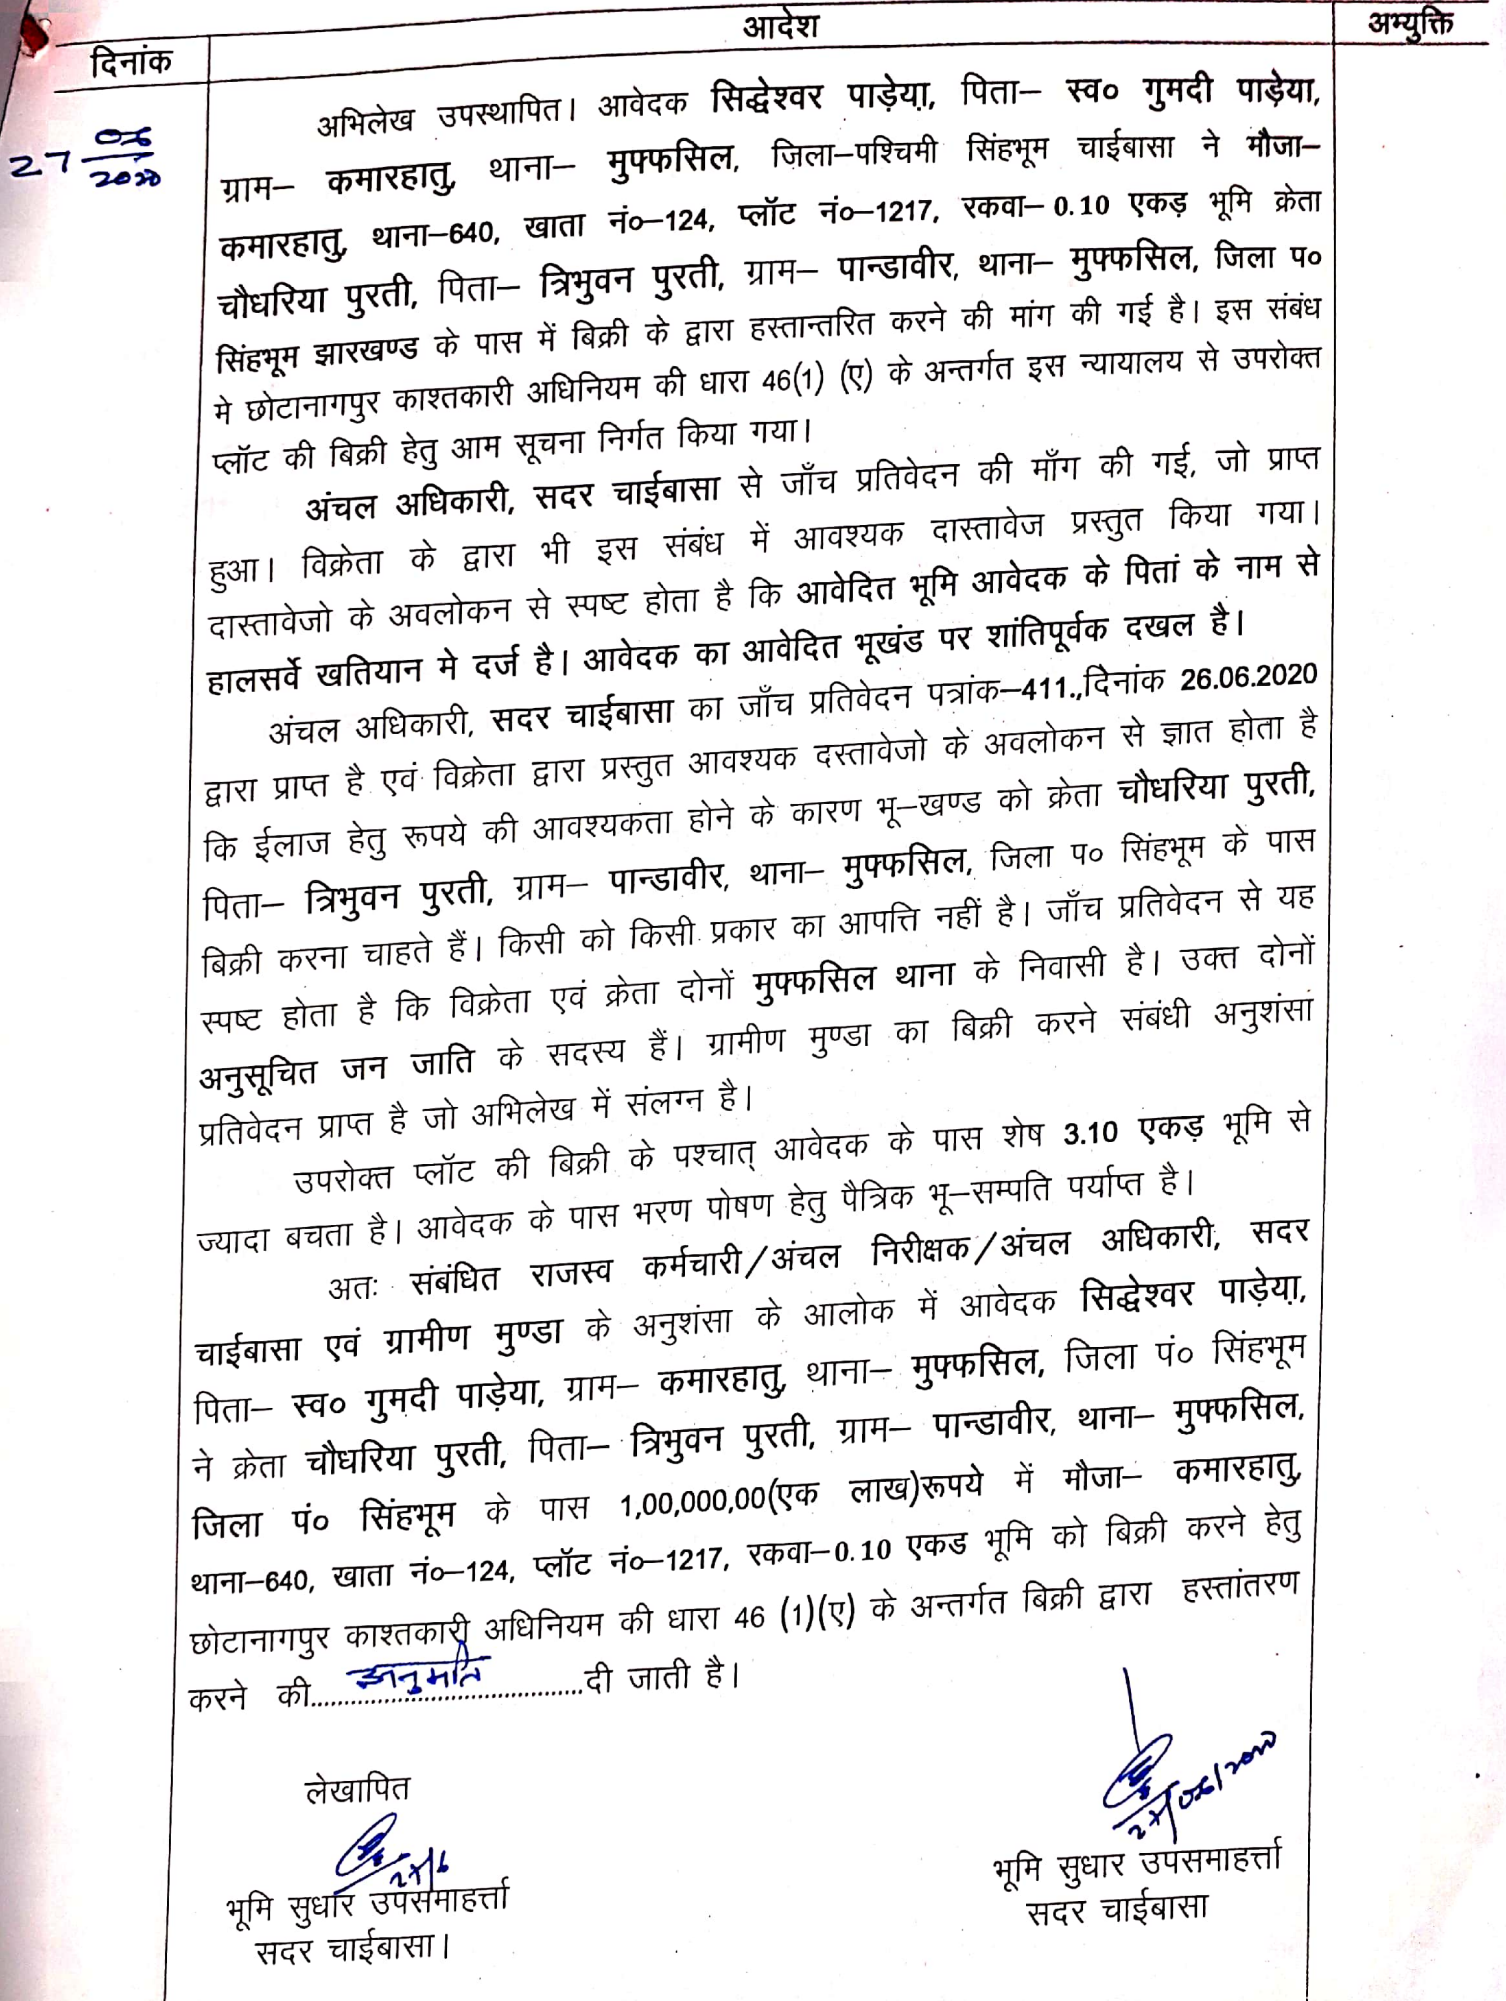 दिनांक
आदेश
अभ्युक्ति
27 06/2020
अभिलेख उपस्थापित। आवेदक सिद्धेश्वर पाड़ेया, पिता– स्व० गुमदी पाड़ेया,
ग्राम– कमारहातु, थाना– मुफ्फसिल, जिला–पश्चिमी सिंहभूम चाईबासा ने मौजा–
कमारहातु, थाना–640, खाता नं०–124, प्लॉट नं०–1217, रकवा– 0.10 एकड़ भूमि क्रेता
चौधरिया पुरती, पिता– त्रिभुवन पुरती, ग्राम– पान्डावीर, थाना– मुफ्फसिल, जिला प०
सिंहभूम झारखण्ड के पास में बिक्री के द्वारा हस्तान्तरित करने की मांग की गई है। इस संबंध
मे छोटानागपुर काश्तकारी अधिनियम की धारा 46(1) (ए) के अन्तर्गत इस न्यायालय से उपरोक्त
प्लॉट की बिक्री हेतु आम सूचना निर्गत किया गया।
अंचल अधिकारी, सदर चाईबासा से जाँच प्रतिवेदन की माँग की गई, जो प्राप्त
हुआ। विक्रेता के द्वारा भी इस संबंध में आवश्यक दास्तावेज प्रस्तुत किया गया।
दास्तावेजो के अवलोकन से स्पष्ट होता है कि आवेदित भूमि आवेदक के पितां के नाम से
हालसर्वे खतियान मे दर्ज है। आवेदक का आवेदित भूखंड पर शांतिपूर्वक दखल है।
अंचल अधिकारी, सदर चाईबासा का जाँच प्रतिवेदन पत्रांक–411.,दिनांक 26.06.2020
द्वारा प्राप्त है एवं विक्रेता द्वारा प्रस्तुत आवश्यक दस्तावेजो के अवलोकन से ज्ञात होता है
कि ईलाज हेतु रूपये की आवश्यकता होने के कारण भू–खण्ड को क्रेता चौधरिया पुरती,
पिता– त्रिभुवन पुरती, ग्राम– पान्डावीर, थाना– मुफ्फसिल, जिला प० सिंहभूम के पास
बिक्री करना चाहते हैं। किसी को किसी प्रकार का आपत्ति नहीं है। जाँच प्रतिवेदन से यह
स्पष्ट होता है कि विक्रेता एवं क्रेता दोनों मुफ्फसिल थाना के निवासी है। उक्त दोनों
अनुसूचित जन जाति के सदस्य हैं। ग्रामीण मुण्डा का बिक्री करने संबंधी अनुशंसा
प्रतिवेदन प्राप्त है जो अभिलेख में संलग्न है।
उपरोक्त प्लॉट की बिक्री के पश्चात् आवेदक के पास शेष 3.10 एकड़ भूमि से
ज्यादा बचता है। आवेदक के पास भरण पोषण हेतु पैत्रिक भू–सम्पति पर्याप्त है।
अतः संबंधित राजस्व कर्मचारी/अंचल निरीक्षक/अंचल अधिकारी, सदर
चाईबासा एवं ग्रामीण मुण्डा के अनुशंसा के आलोक में आवेदक सिद्धेश्वर पाड़ेया,
पिता– स्व० गुमदी पाड़ेया, ग्राम– कमारहातु, थाना– मुफ्फसिल, जिला पं० सिंहभूम
ने क्रेता चौधरिया पुरती, पिता– त्रिभुवन पुरती, ग्राम– पान्डावीर, थाना– मुफ्फसिल,
जिला पं० सिंहभूम के पास 1,00,000,00(एक लाख)रूपये में मौजा– कमारहातु,
थाना–640, खाता नं०–124, प्लॉट नं०–1217, रकवा–0.10 एकड भूमि को बिक्री करने हेतु
छोटानागपुर काश्तकारी अधिनियम की धारा 46 (1)(ए) के अन्तर्गत बिक्री द्वारा हस्तांतरण
करने की....अनुमति....दी जाती है।
लेखापित
27/6
27/06/2020
भूमि सुधार उपसमाहर्त्ता
सदर चाईबासा।
भूमि सुधार उपसमाहर्त्ता
सदर चाईबासा